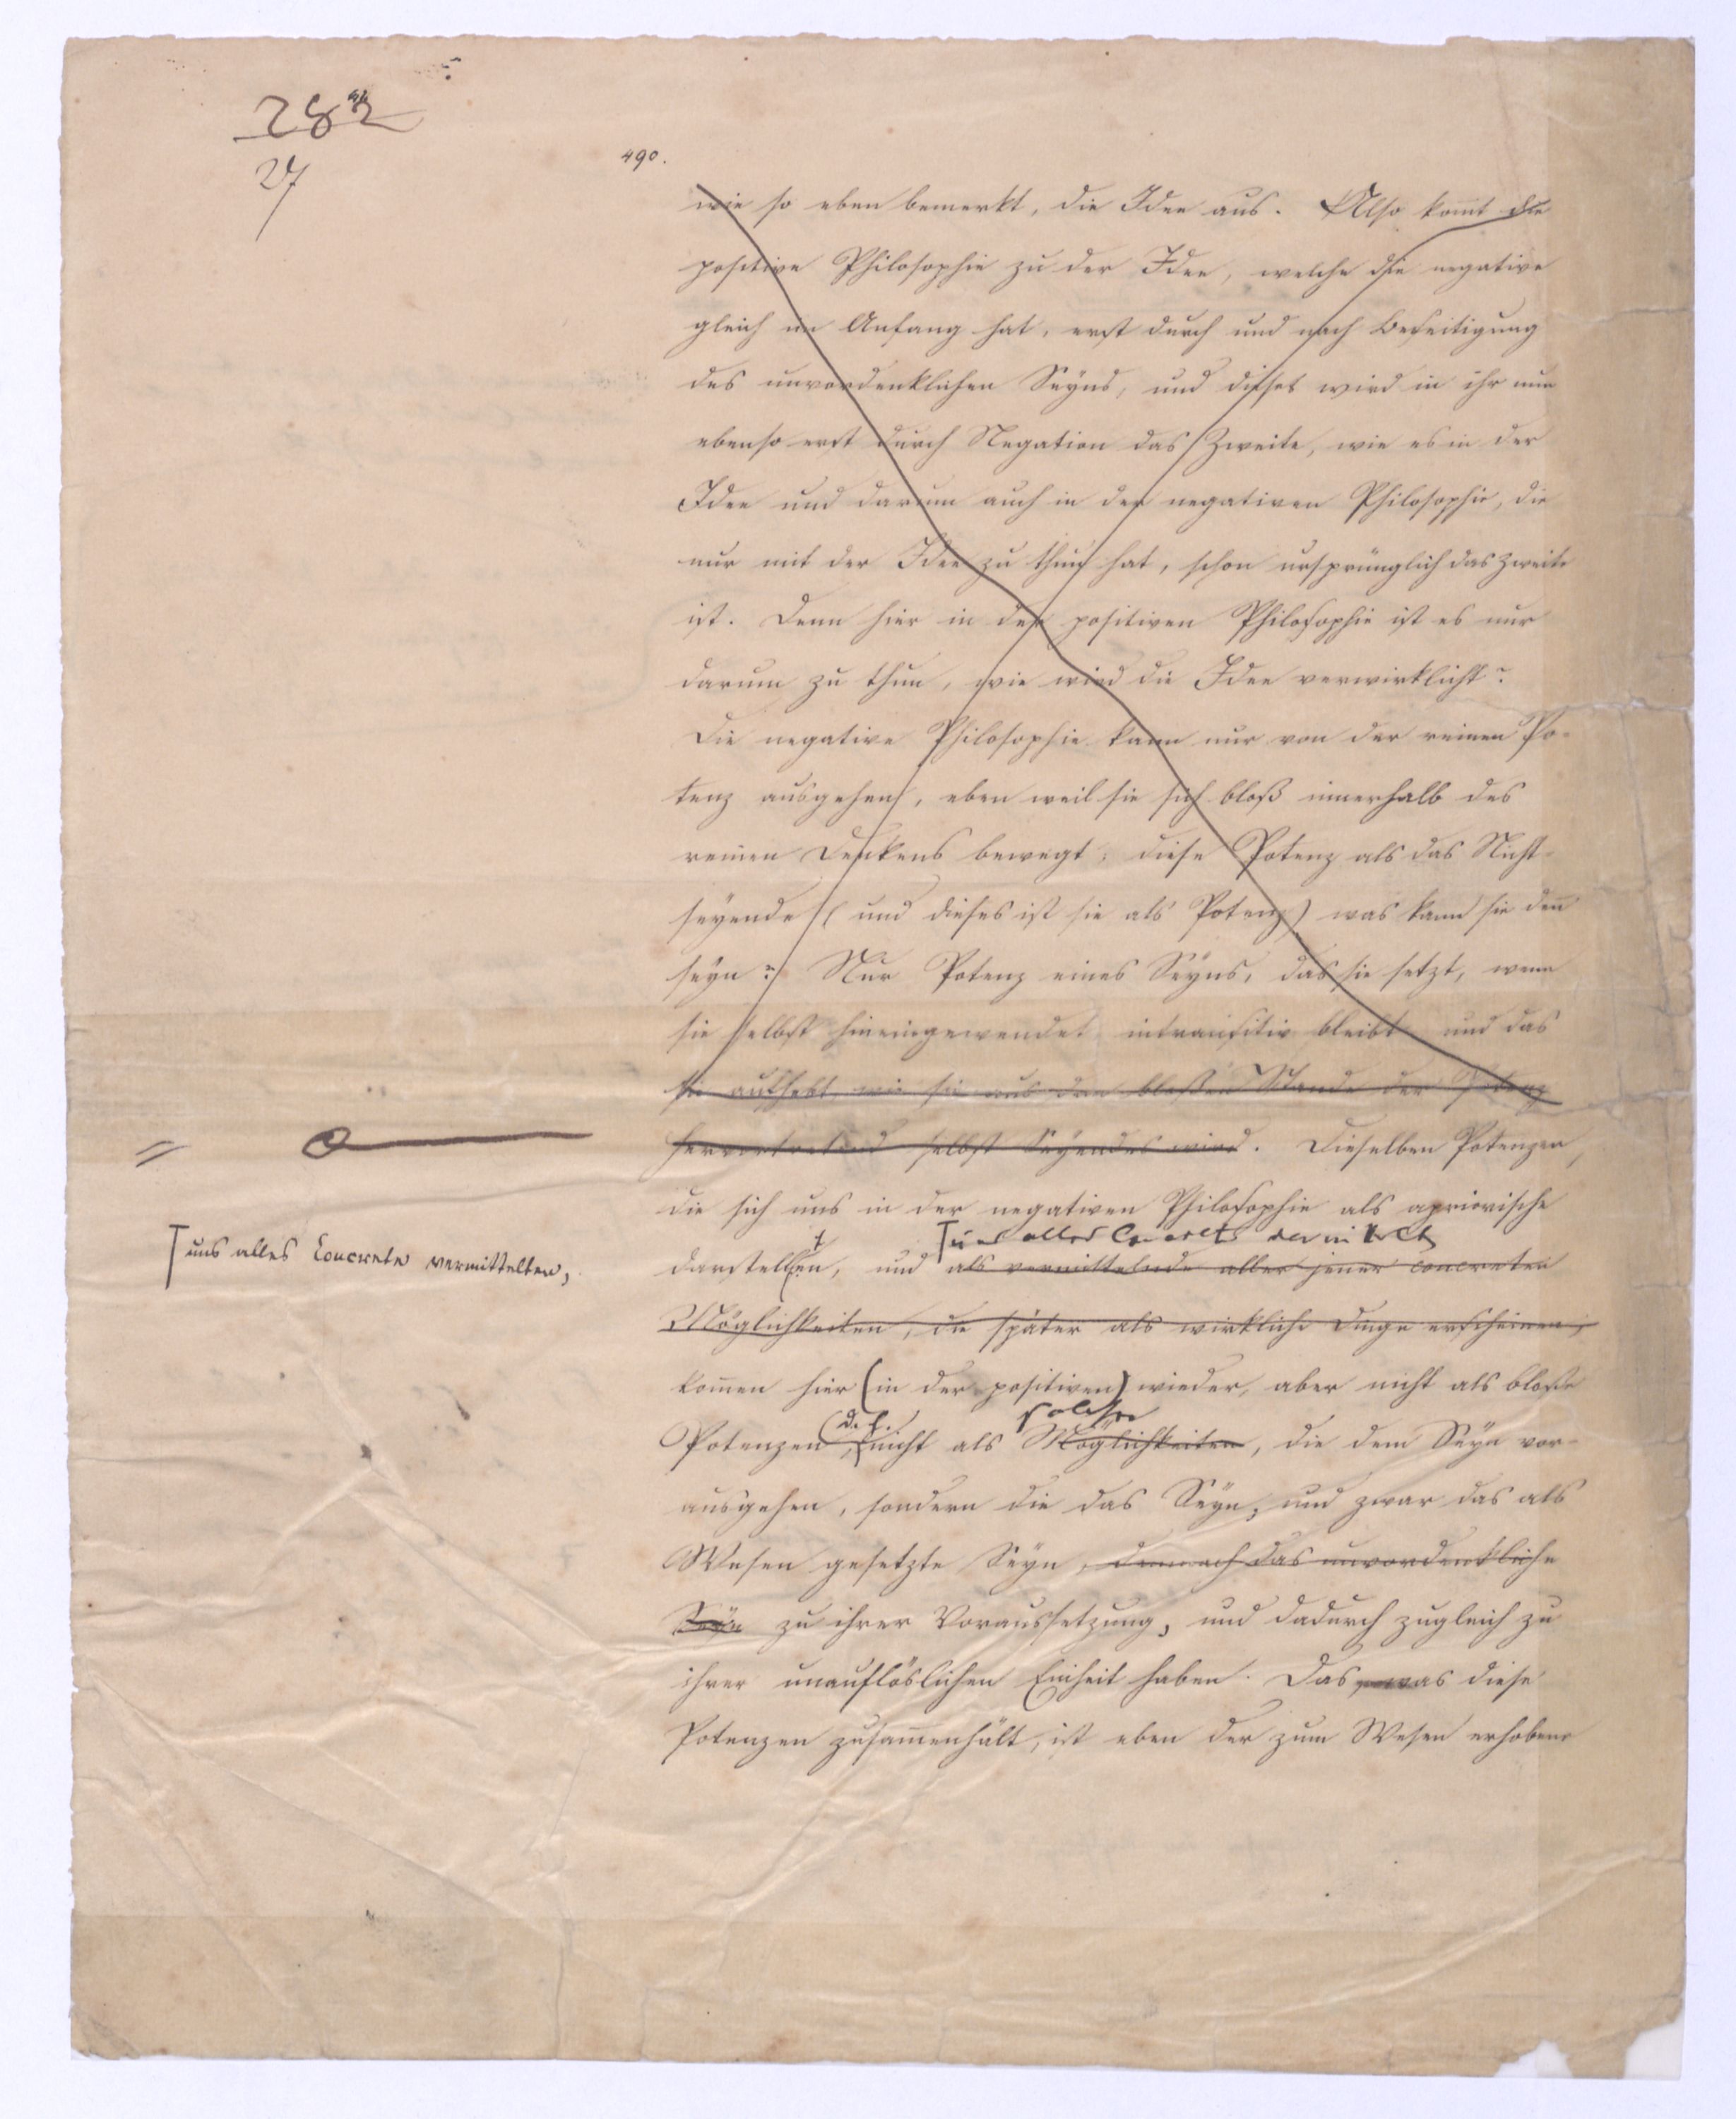 282
27
490.
wie so eben bemerkt, die Idee aus. Also kom̄t die
positive Philosophie zu der Idee, welche die negative
gleich im Anfang hat, erst durch und nach Beseitigung
des unvordenklichen Seyns, und dieses wird in ihr nun
ebenso erst durch Negation das Zweite, wie es in der
Idee und darum auch in der negativen Philosophie, die
nur mit der Idee zu thun hat, schon ursprünglich das Zweite
ist. Denn hier in der positiven Philosophie ist es nur
darum zu thun, wie wird die Idee verwirklicht?
Die negative Philosophie kann nur von der reinen Po-
tenz ausgehen, eben weil sie sich bloß innerhalb des
reinen Denkens bewegt; diese Potenz als das Nicht-
seyende (und dieses ist sie als Potenz) was kann sie den̄
seyn? Nur Potenz eines Seyns, das sie setzt, wenn
sie selbst hineingewendet intransitiv bleibt und das
sie aufhebt, wie sie aus dem bloßen Stande der Potenz
hervortretend selbst Seyendes wird. Dieselben Potenzen,
die sich uns in der negativen Philosophie als apriorische
uns alles Concrete vermittelten,
uns alles Concrete vermittelt
t
darstellen, und als vermittelnde aller jener concreten
Möglichkeiten, die später als wirkliche Dinge erscheinen,
kom̄en hier (in der positiven) wieder, aber nicht als bloße
d. h. solche
Potenzen, nicht als Möglichkeiten, die dem Seyn vor-
ausgehen, sondern die das Seyn, und zwar das als
Wesen gesetzte Seyn, demnach das unvordenkliche
Seyn zu ihrer Voraussetzung, und dadurch zugleich zu
ihrer unauflöslichen Einheit haben. Das was diese
Potenzen zusam̄enhält, ist eben der zum Wesen erhobene